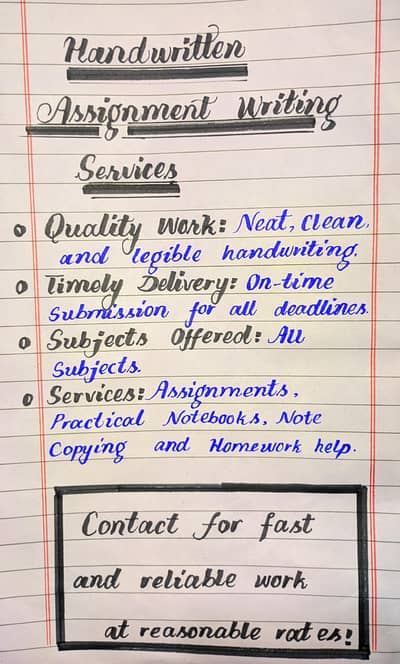 Handwritten
Assignment Writing
Services
Quality Work: Neat, Clean,
and legible handwriting.
Timely Delivery: On-time
Submission for all deadlines.
Subjects Offered: All
Subjects.
Services: Assignments,
Practical Notebooks, Note
Copying and Homework help.
Contact for fast
and reliable work
at reasonable rates!